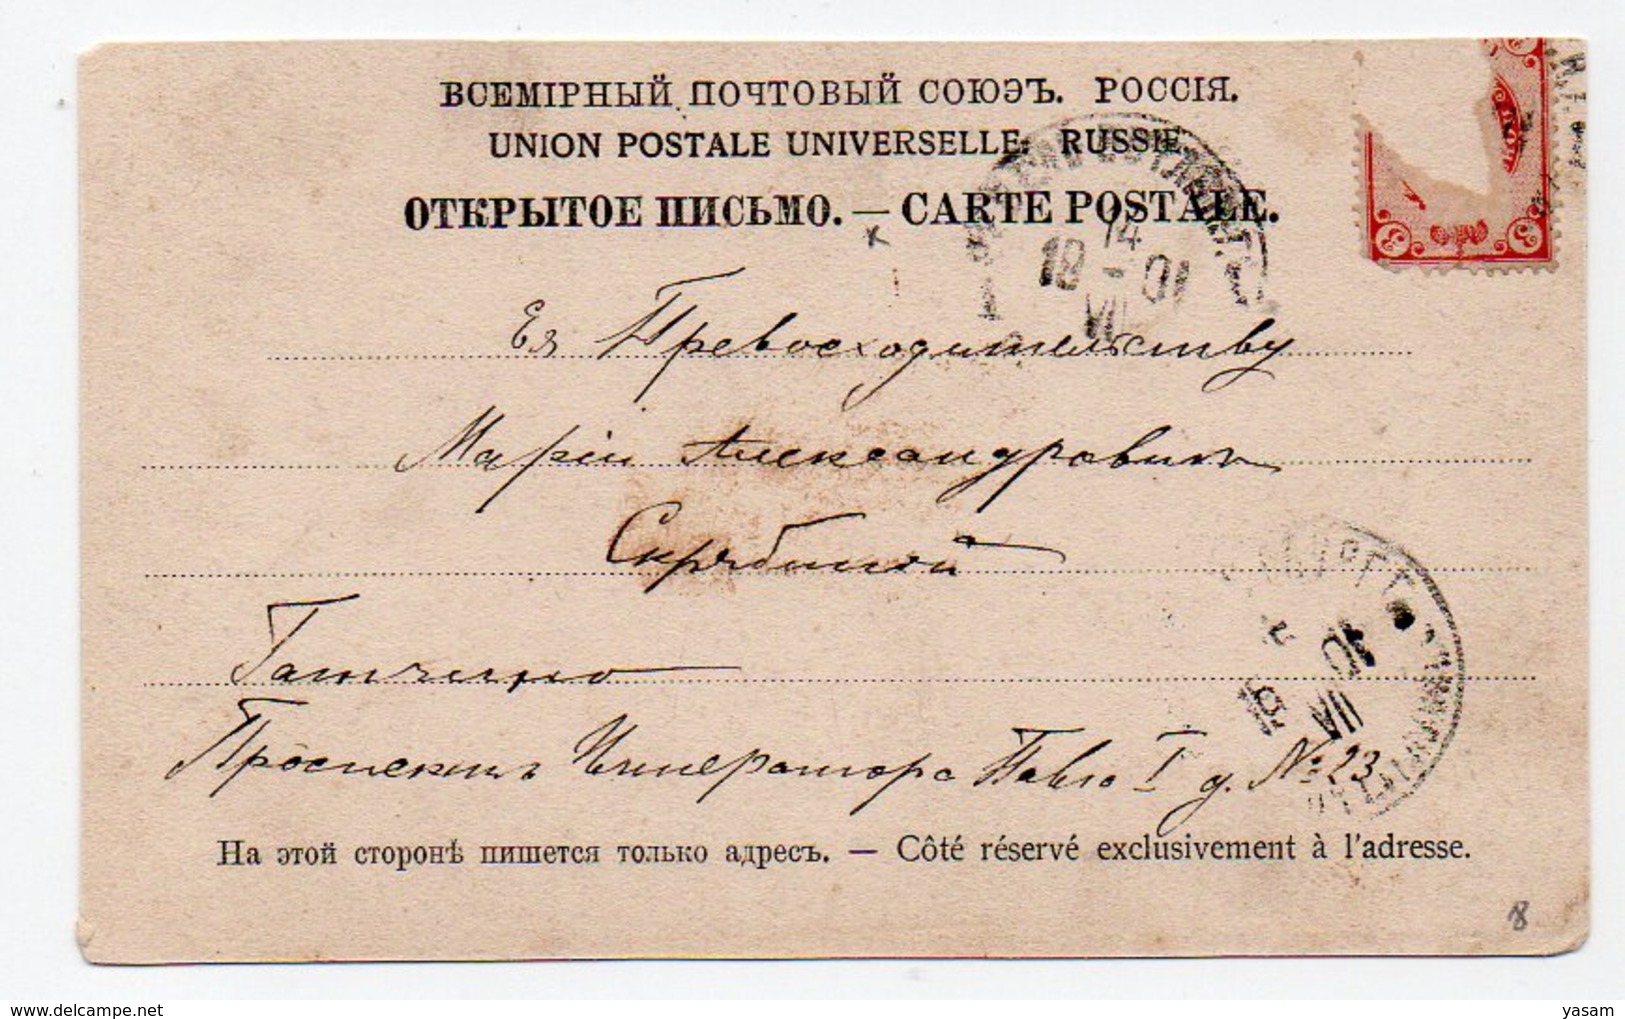 ВСЕМІРНЫЙ ПОЧТОВЫЙ СОЮЭЪ. РОССІЯ.
UNION POSTALE UNIVERSELLE. RUSSIE
ОТКРЫТОЕ ПИСЬМО. — CARTE POSTALE.
18 14 01
VII
3 3 3
Ея Превосходительству
Маріи Александровнѣ
Скрябиной
Гатчино
Проспектъ Императора Павла I д. № 23
На этой сторонѣ пишется только адресъ. — Côté réservé exclusivement à l'adresse.
8
delcampe.net
yasam